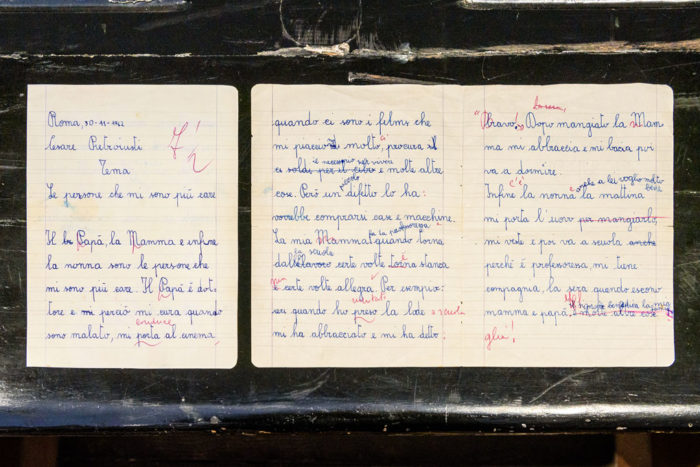 Roma, 30-11-1962
Cesare Pietroiusti
7½
Tema
Le persone che mi sono più care
Il Papà, la Mamma e infine
la nonna sono le persone che
mi sono più care. Il Papà è dot-
tore e mi perciò mi cura quando
conduce
sono malato, mi porta al cinema,
quando ci sono i films che
mi piacciono molto, procura il
è necessario per vivere
ci soldi per il cibo e molte altre
piccolo
cose. Però un difetto lo ha:
vorrebbe comprarsi case e macchine.
fa la professoressa
La mia Mamma, quando torna
la scuola
dal lavoro certe volte torna stanca
e certe volte allegra. Per esempio:
meritato
ieri quando ho preso la lode a scuola
mi ha abbracciato e mi ha detto:
la sera,
"Bravo!" Dopo mangiato la Mam-
ma mi abbraccia e mi bacia poi
va a dormire.
c'è anche a lei voglio molto
bene
Infine la nonna la mattina
mi porta l'uovo per mangiarlo,
mi veste e poi va a scuola anche
perché è professoressa, mi tiene
compagnia, la sera quando escono
mamma e papà, e molte altre cose
gliu!